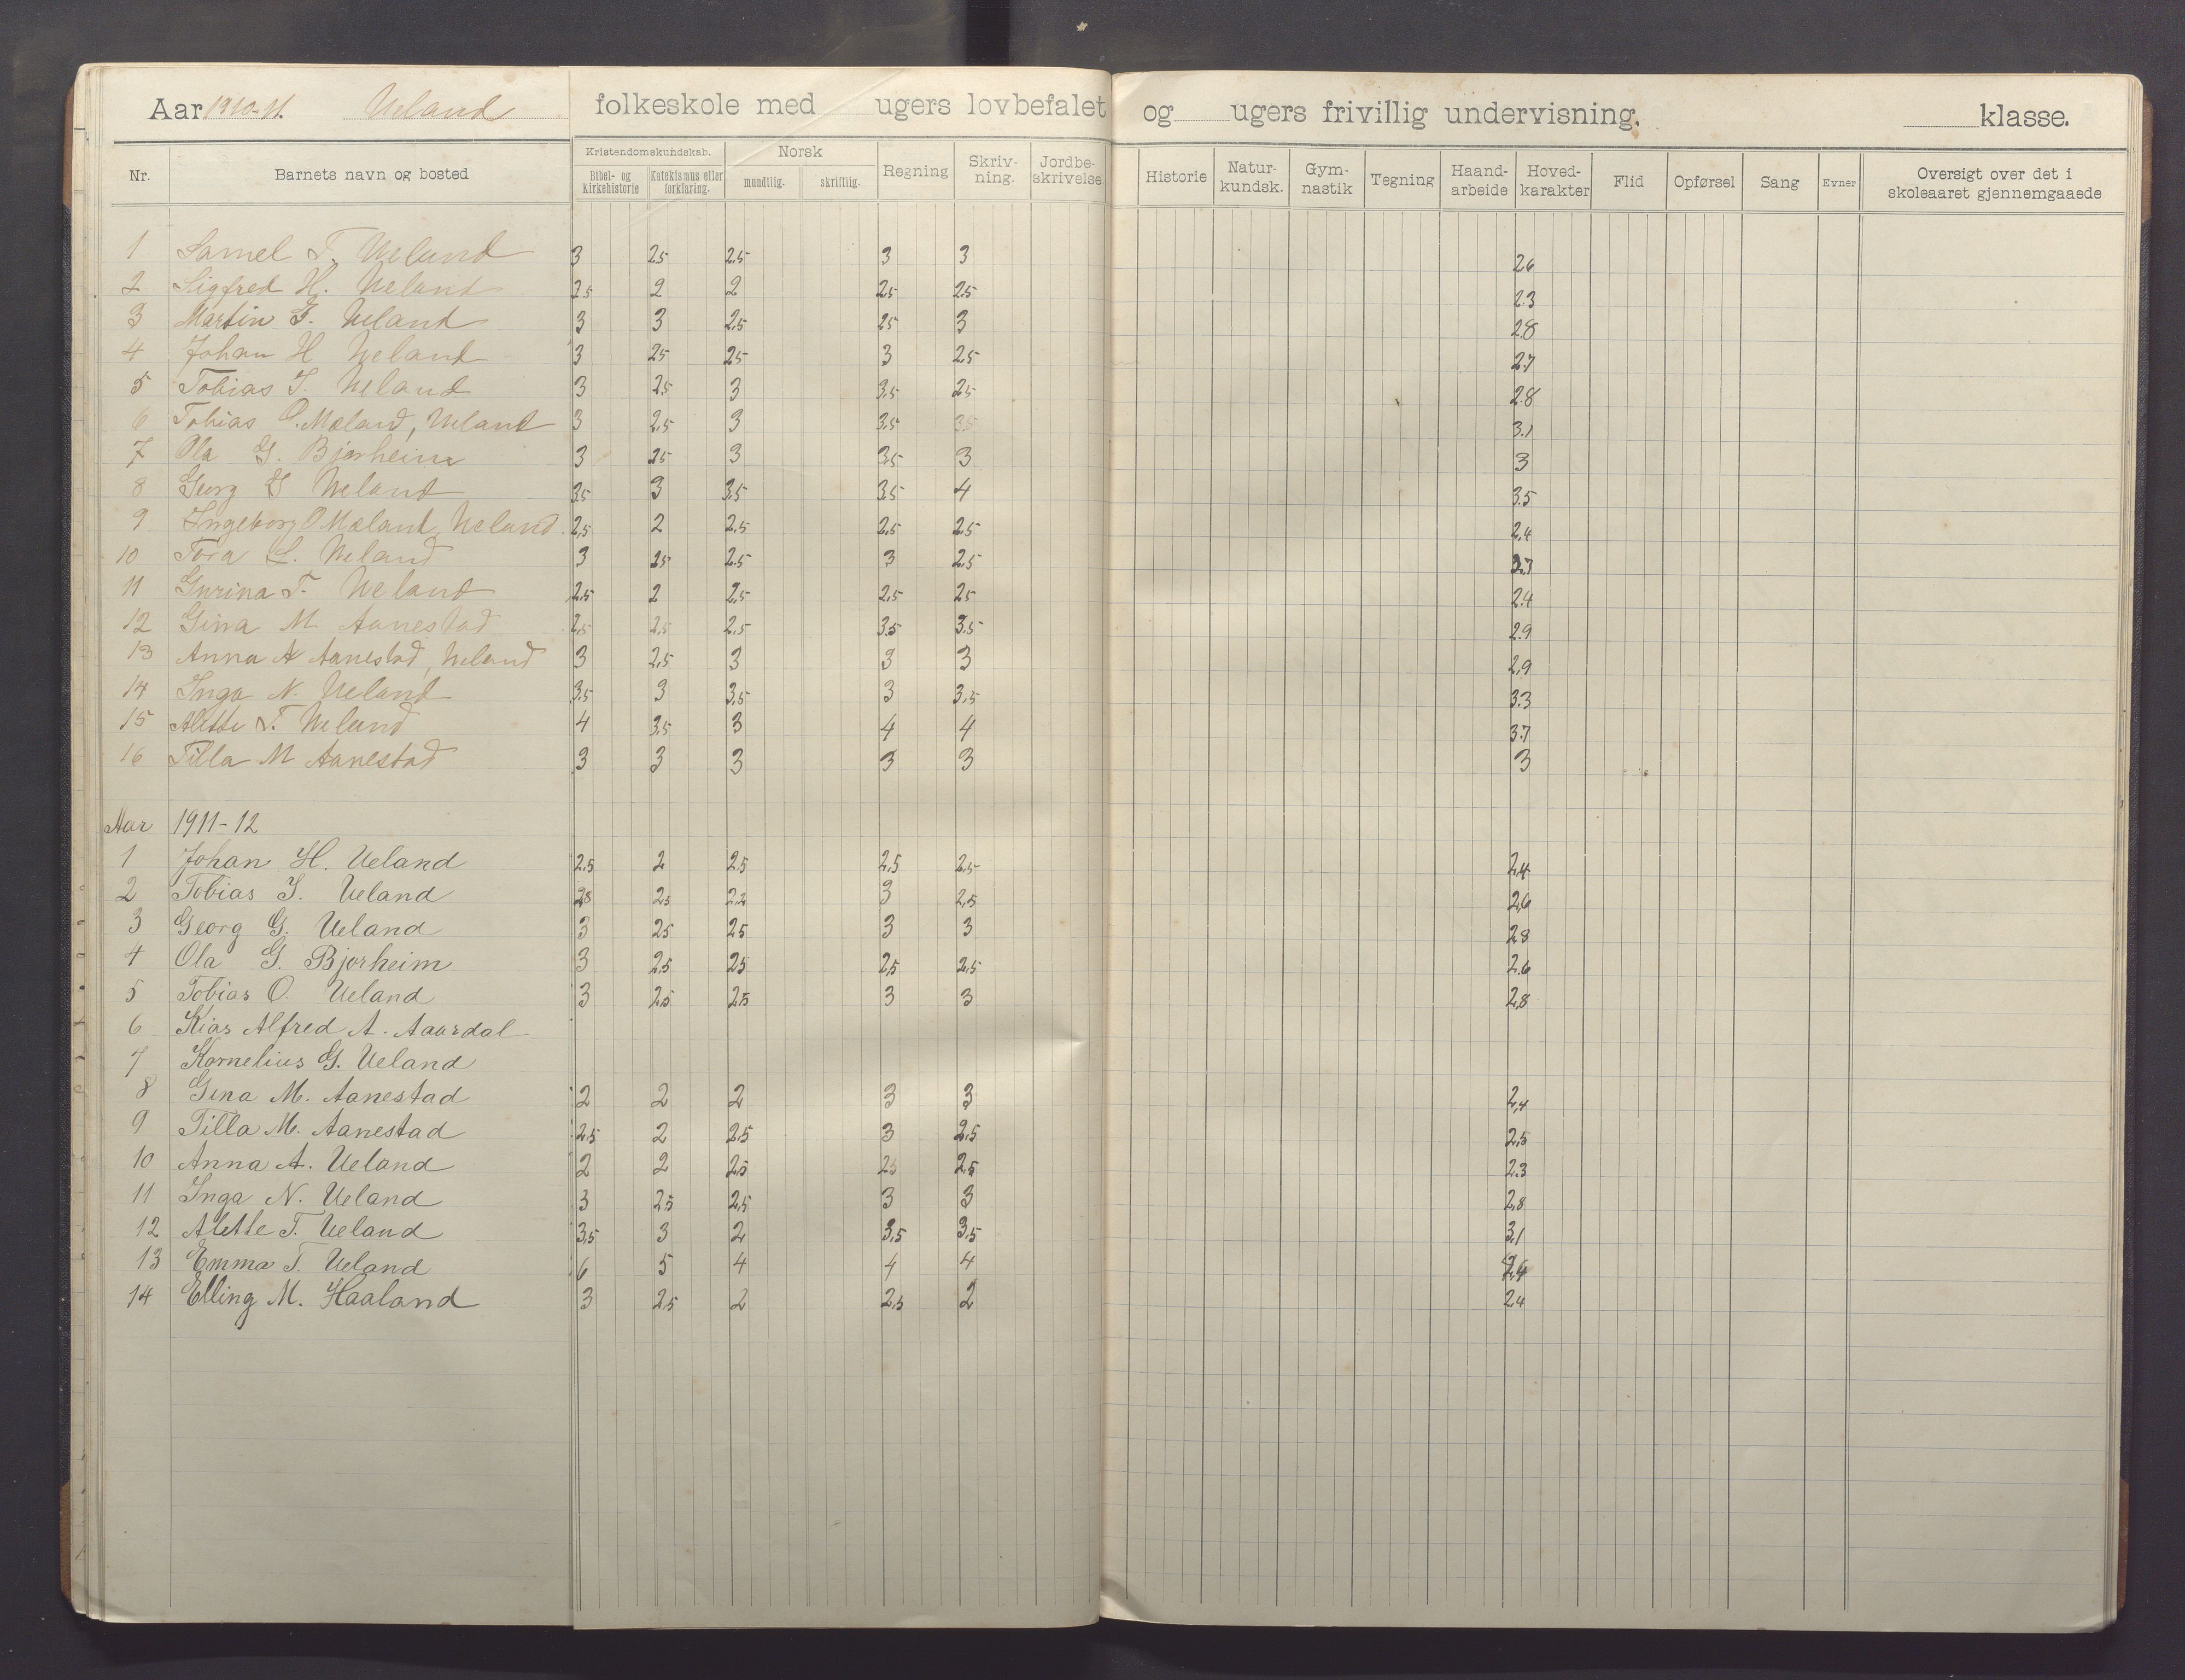 Aar 1910-11. Ueland folkeskole med ugers lovbefalet og ugers frivillig undervisning. klasse.
Nr. Barnets navn og bosted Kristendomskundskab. Bibel- og kirkehistorie Katekismus eller forklaring. Norsk mundtlig. skriftlig. Regning Skriv-ning. Jordbe-skrivelse Historie Natur-kundsk. Gym-nastik Tegning Haand-arbeide Hoved-karakter Flid Opførsel Sang Evner Oversigt over det i skoleaaret gjennemgaaede
1 Samel T. Ueland 3 2.5 2.5 3 3 2.6
2 Sigfred H. Ueland 2.5 2 2 2.5 2.5 2.3
3 Martin G. Ueland 3 3 2.5 2.5 3 2.8
4 Johan H Ueland 3 2.5 2.5 3 2.5 2.7
5 Tobias I. Ueland 3 2.5 3 3.5 2.5 2.8
6 Tobias O. Mæland, Ueland 3 2.5 3 3.5 3.5 3.1
7 Ola G. Bjorheim 3 2.5 3 3.5 3 3
8 Georg G Ueland 3.5 3 3.5 3.5 4 3.5
9 Ingeborg O Mæland, Ueland 2,5 2 2,5 2,5 2,5 2,4
10 Tora L. Ueland 3 2.5 2.5 3 2.5 2.7
11 Gurina T. Ueland 2.5 2 2.5 2.5 2.5 2.4
12 Gina M Aanestad 2.5 2.5 2.5 3.5 3.5 2.9
13 Anna A Aanestad, Ueland 3 2,5 3 3 3 2,9
14 Inga N. Ueland 3.5 3 3,5 3 3,5 3.3
15 Alette T. Ueland 4 3.5 3 4 4 3.7
16 Tilla M Aanestad 3 3 3 3 3 3
Aar 1911-12
1 Johan H. Ueland 2.5 2 2.5 2.5 2.5 2.4
2 Tobias I. Ueland 2.8 2.5 2.2 3 2,5 2,6
3 Georg G. Ueland 3 2.5 2.5 3 3 2.8
4 Ola G. Bjorheim 3 2.5 2.5 2,5 2.5 2.6
5 Tobias O. Ueland 3 2.5 2.5 3 3 2,8
6 Kias Alfred A. Aardal
7 Kornelius G. Ueland
8 Gina M. Aanestad 2 2 2 3 3 2,4
9 Tilla M. Aanestad 2,5 2 2.5 3 2,5 2,5
10 Anna A. Ueland 2 2 2.5 2.5 2.5 2.3
11 Inga N. Ueland 3 2.5 2,5 3 3 2,8
12 Alette T. Ueland 3,5 3 2 3,5 3,5 3,1
13 Emma T. Ueland 6 5 4 4 4
14 Elling M. Haaland 3 2.5 2 2.5 2 2.4